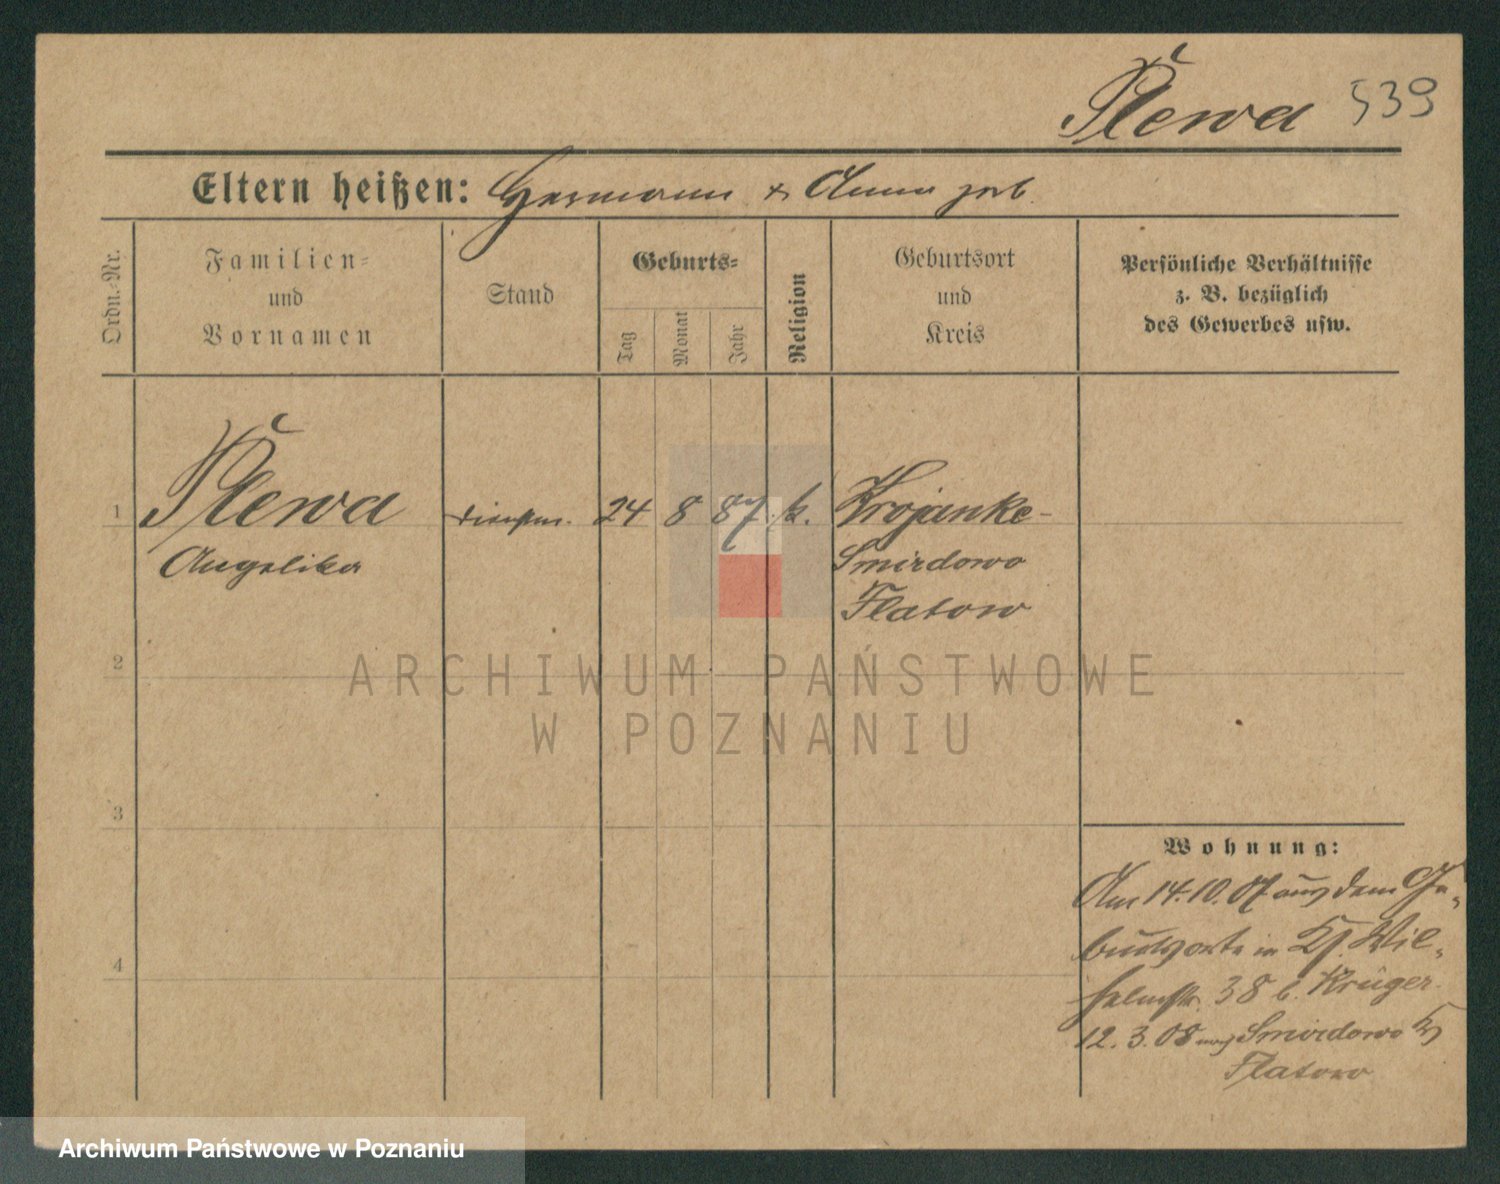 Plewa 539
Eltern heißen: Hermann & Anna geb.
Ordn.-Nr.
Familien-
und
Vornamen
Stand
Geburts-
Tag
Monat
Jahr
Religion
Geburtsort
und
Kreis
Persönliche Verhältnisse
z. B. bezüglich
des Gewerbes usw.
1 Plewa 24 8 87 k. Krojanke-
Angelika Smirdowo
Flatow
2
3
4
ARCHIWUM PAŃSTWOWE
W POZNANIU
Wohnung:
Am 14.10.07 aus dem Ge-
burtsorte in Wil-
helmstr. 38 b. Krüger.
12.3.08 nach Smirdowo
Flatow
Archiwum Państwowe w Poznaniu